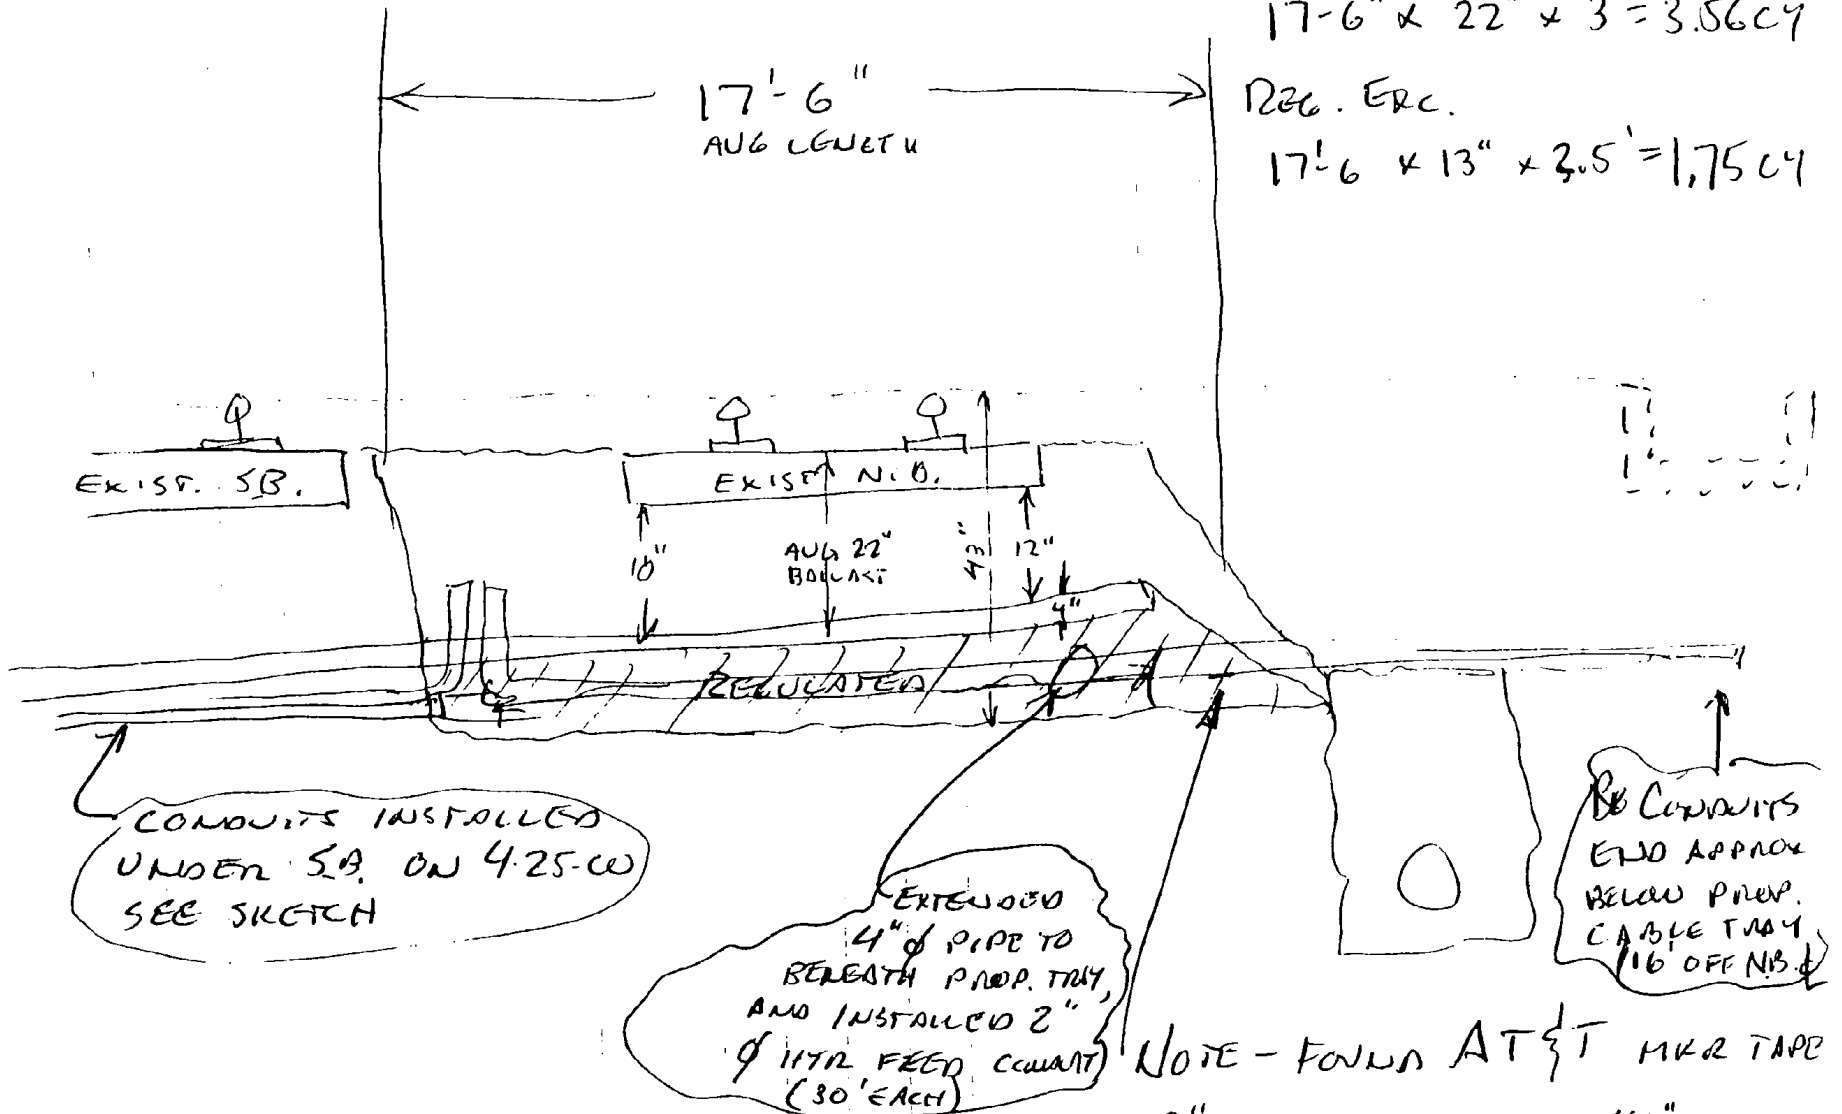 17-6" x 22" x 3 = 3.56CY
17'-6"
AVG LENGTH
REG. EXC.
17'-6 x 13" x 2.5' = 1.75 CY
EXIST. S.B.
EXIST N.B.
10"
AVG 22"
BALLAST
43"
12"
4"
REGULATED
CONDUITS INSTALLED
UNDER S.B. ON 4-25-00
SEE SKETCH
EXTENDED
4" ϕ PIPE TO
BENEATH PROP. TRAY,
AND INSTALLED 2"
ϕ HTR FEED CONDUIT
(30' EACH)
CONDUITS
END APPROX
BELOW PROP.
CABLE TRAY
16' OFF N.B. ℄
NOTE - FOUND AT&T MKR TAPE